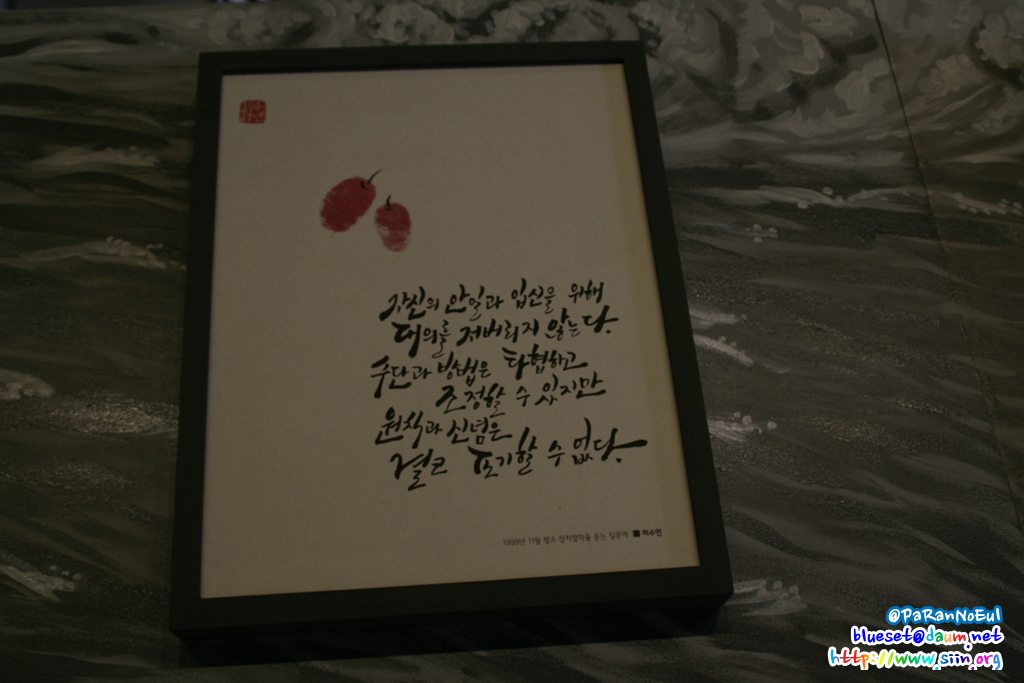 자신의 안일과 입신을 위해
대의를 저버리지 않는다.
수단과 방법은 타협하고
조정할 수 있지만
원칙과 신념은
결코 포기할 수 없다.
1999년 11월 평소 정치철학을 묻는 질문에 ■ 허수연
@PaRanNoEul
blueset@daum.net
http://www.siin.org